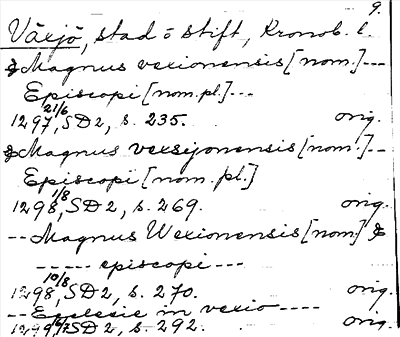 9.
Växjö, stad o stift, Kronob. l.
& Magnus vexionensis [nom.] ---
Episcopi [nom. pl.] ---
1297 21/6, SD2, s. 235. orig.
& Magnus vexsijonensis [nom.] --
Episcopi [nom. pl.]
1298 1/8, SD2, s. 269. orig.
-- Magnus Wexionensis [nom] &
----- episcopi ---
1298 10/8, SD2, s. 270. orig.
-- Ecclesie in vexio ----
1299 SD2, s. 292. orig.